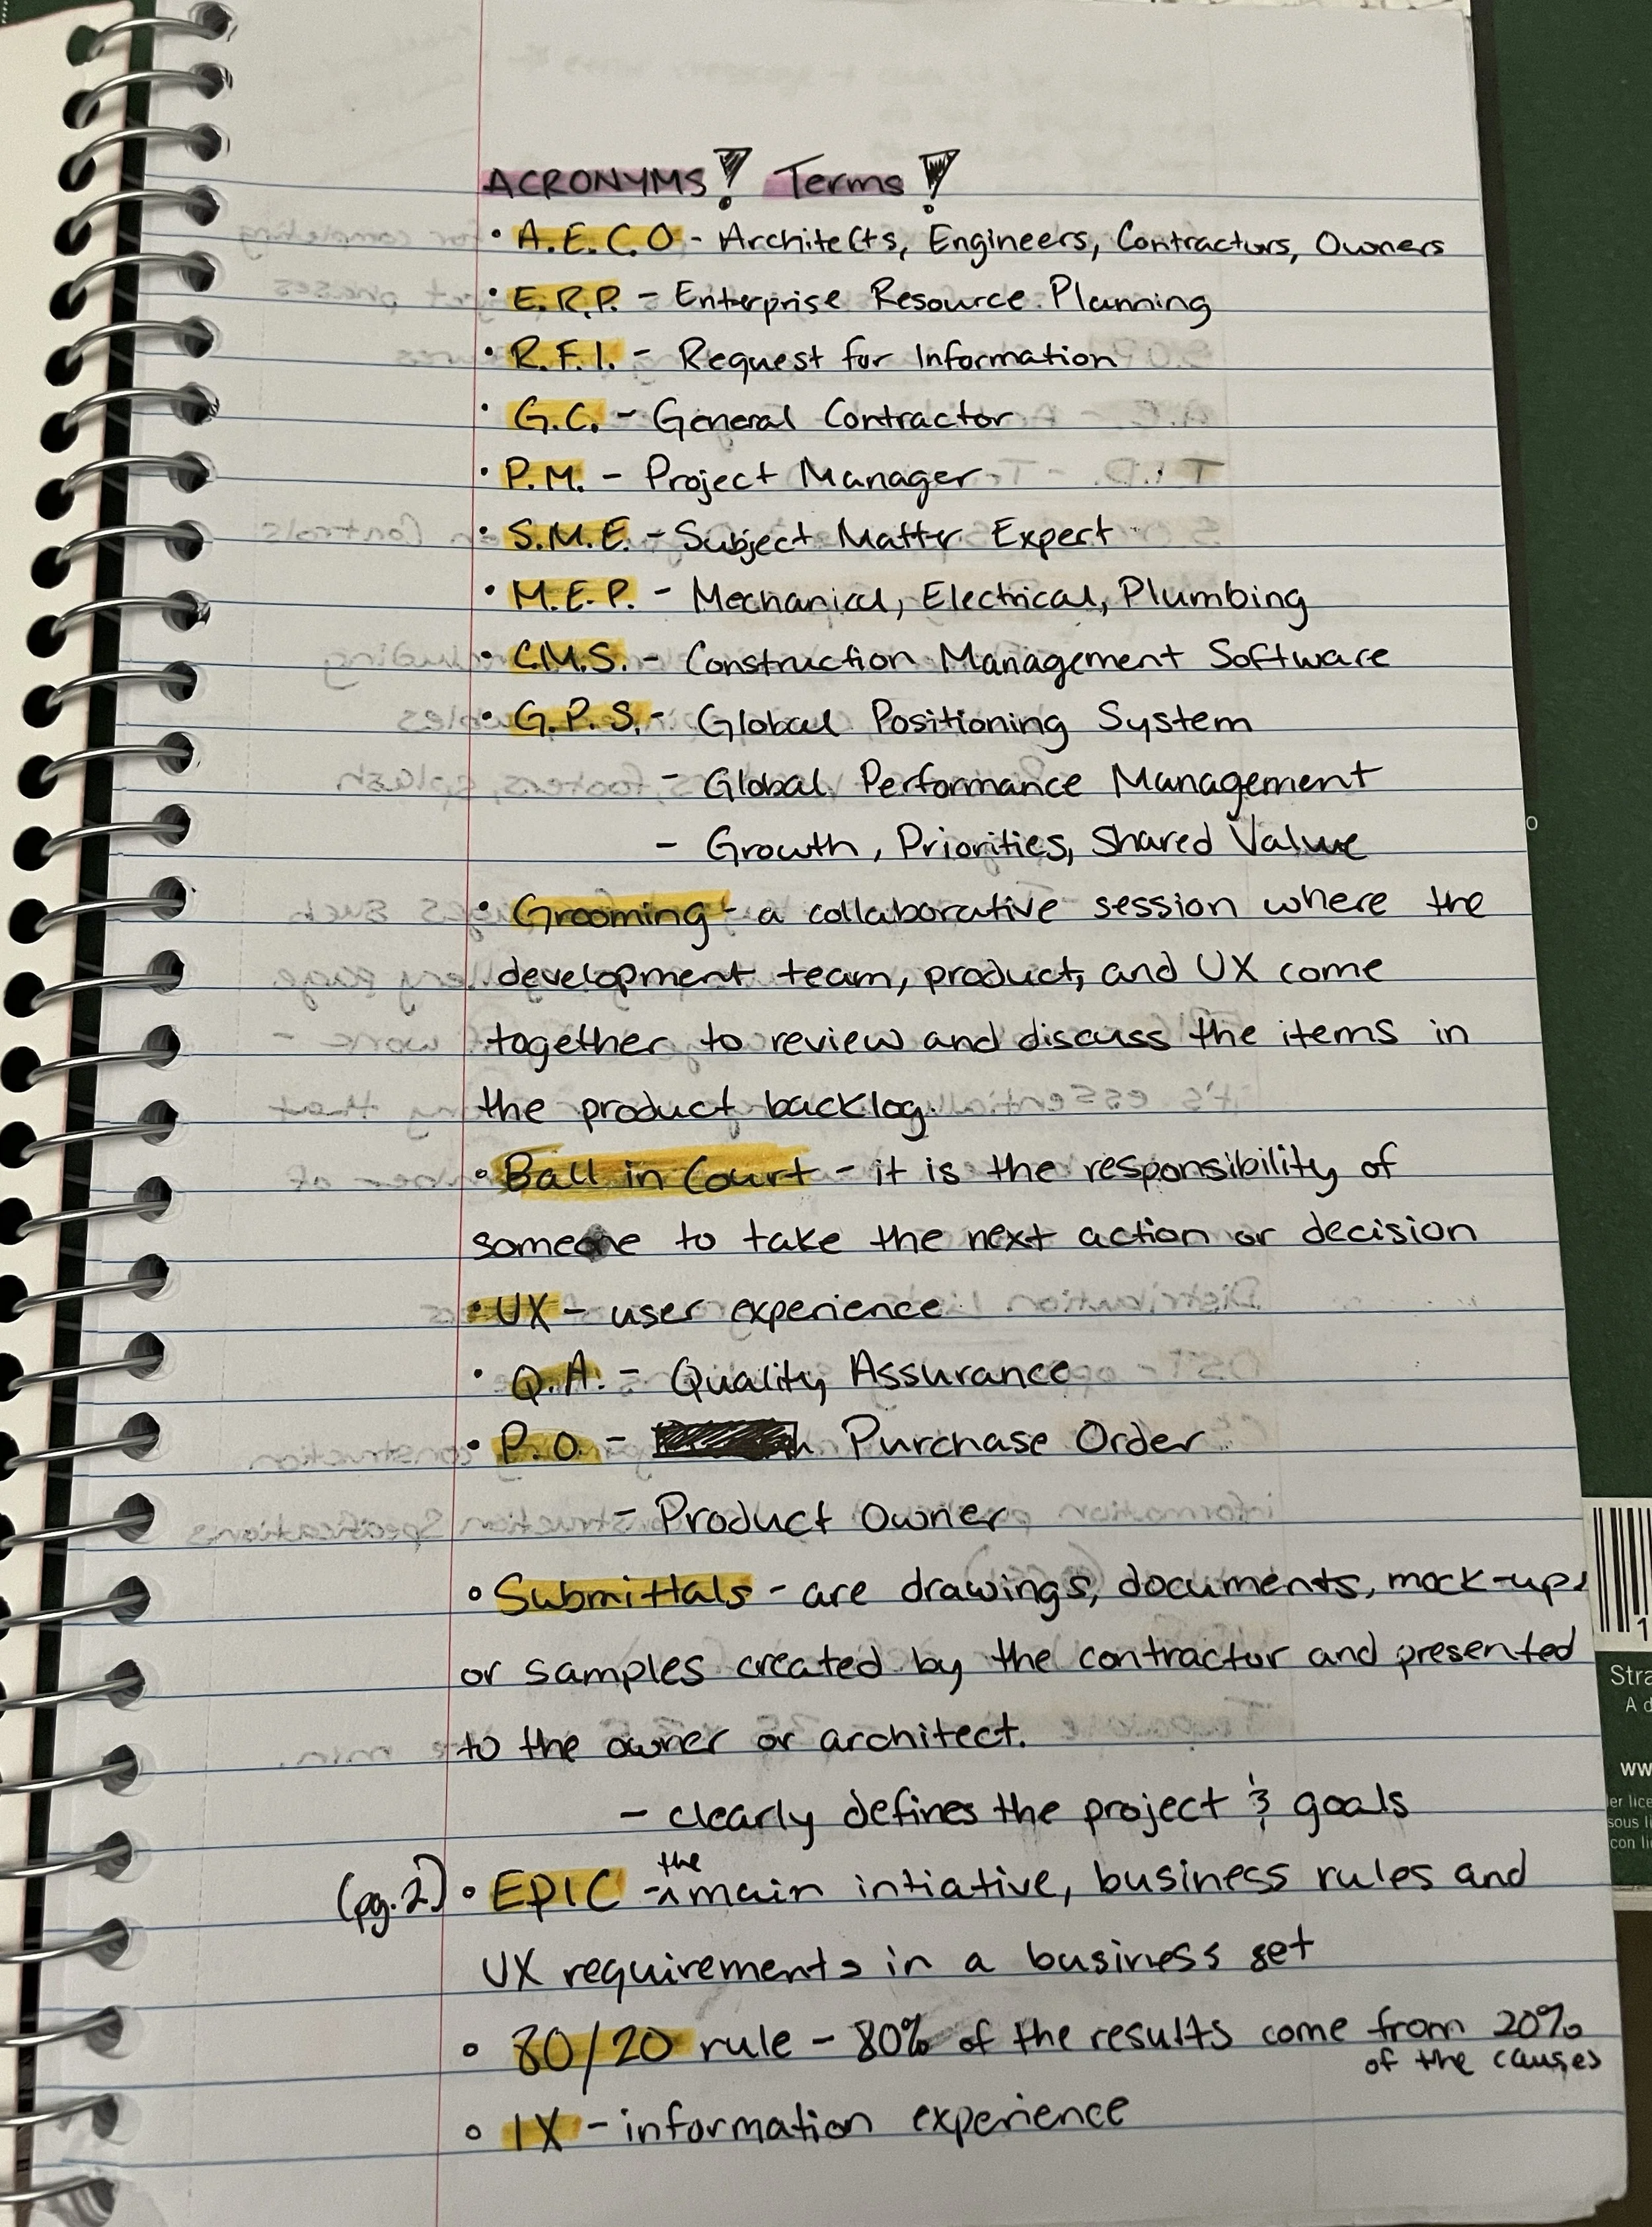 ACRONYMS! Terms!
• A.E.C.O - Architects, Engineers, Contractors, Owners
• E.R.P. - Enterprise Resource Planning
• R.F.I. - Request for Information
• G.C. - General Contractor
• P.M. - Project Manager
• S.M.E. - Subject Matter Expert
• M.E.P. - Mechanical, Electrical, Plumbing
• C.M.S. - Construction Management Software
• G.P.S. - Global Positioning System
- Global Performance Management
- Growth, Priorities, Shared Value
• Grooming - a collaborative session where the
development team, product, and UX come
together to review and discuss the items in
the product backlog.
• Ball in Court - it is the responsibility of
someone to take the next action or decision
• UX - user experience
• Q.A. - Quality Assurance
• P.O. - Purchase Order
- Product Owner
• Submittals - are drawings, documents, mock-ups
or samples created by the contractor and presented
to the owner or architect.
- clearly defines the project & goals
(pg.2) • EPIC - the main intiative, business rules and
UX requirements in a business set
• 80/20 rule - 80% of the results come from 20%
of the causes
• IX - information experience